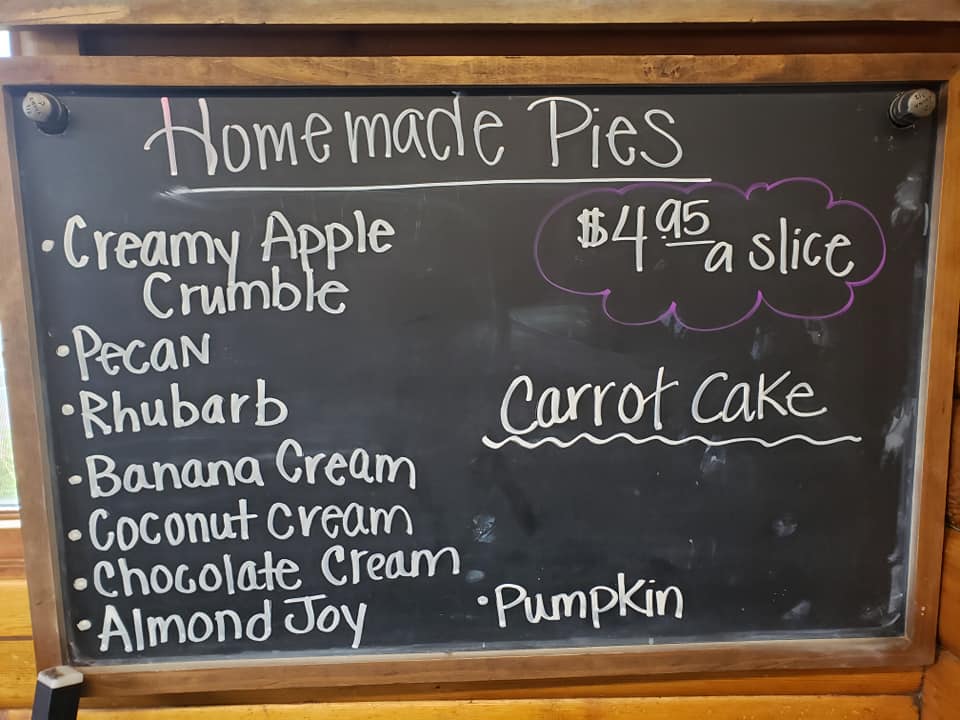 Homemade Pies
$4.95 a slice
• Creamy Apple
Crumble
• Pecan
• Rhubarb
• Banana Cream
• Coconut Cream
• Chocolate Cream
• Almond Joy
Carrot Cake
• Pumpkin